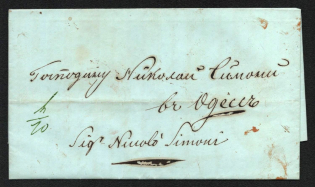 Господину Николаи Симони
въ Одессѣ
Sigr Nicolò Simoni